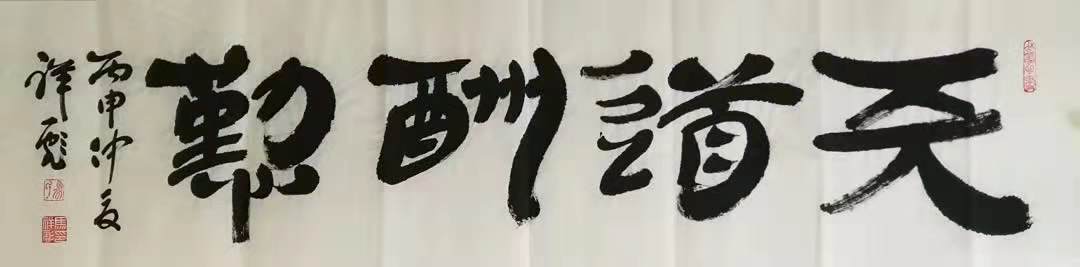 天道酬勤
丙申仲夏
祥彪